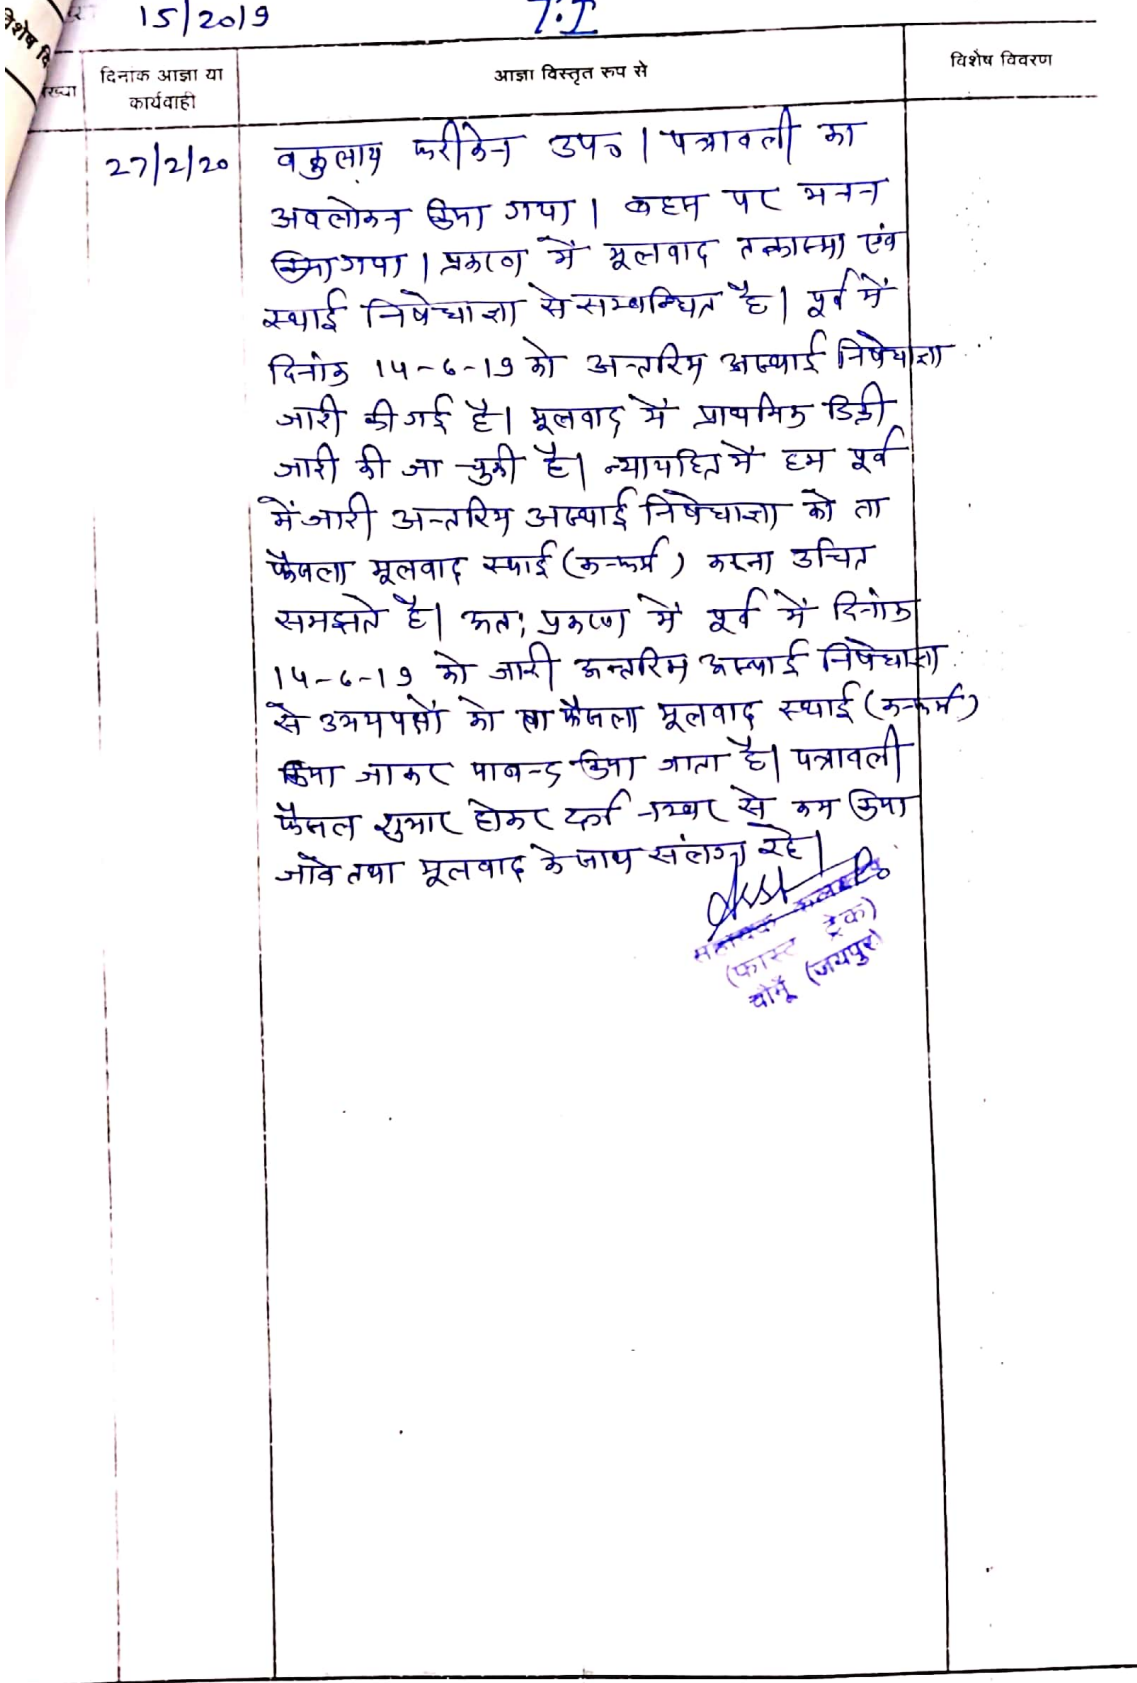 15/2019 T.I
विशेष वि
ख्या
दिनांक आज्ञा या
कार्यवाही
आज्ञा विस्तृत रूप से
विशेष विवरण
27/2/20
वकुलाय फरीकेन उप० । पत्रावली का
अवलोकन किया गया । बहस पर मनन
किया गया । प्रकरण में मूलवाद तकास्मा एंव
स्थाई निषेधाज्ञा से सम्बन्धित है । पूर्व में
दिनांक 14-6-19 को अन्तरिम अस्थाई निषेधाज्ञा
जारी की गई है । मूलवाद में प्राथमिक डिक्री
जारी की जा चुकी है । न्यायहित में हम पूर्व
में जारी अन्तरिम अस्थाई निषेधाज्ञा को ता
फैसला मूलवाद स्थाई (कन्फर्म) करना उचित
समझते है । अतः प्रकरण में पूर्व में दिनांक
14-6-19 को जारी अन्तरिम अस्थाई निषेधाज्ञा
से उभयपक्षों को ता फैसला मूलवाद स्थाई (कन्फर्म)
किया जाकर पाबन्द किया जाता है । पत्रावली
फैसल शुमार होकर दर्ज नम्बर से कम किया
जावे तथा मूलवाद के साथ संलग्न रहे ।
सहायक कलक्टर
(फास्ट ट्रेक)
चौमूँ (जयपुर)